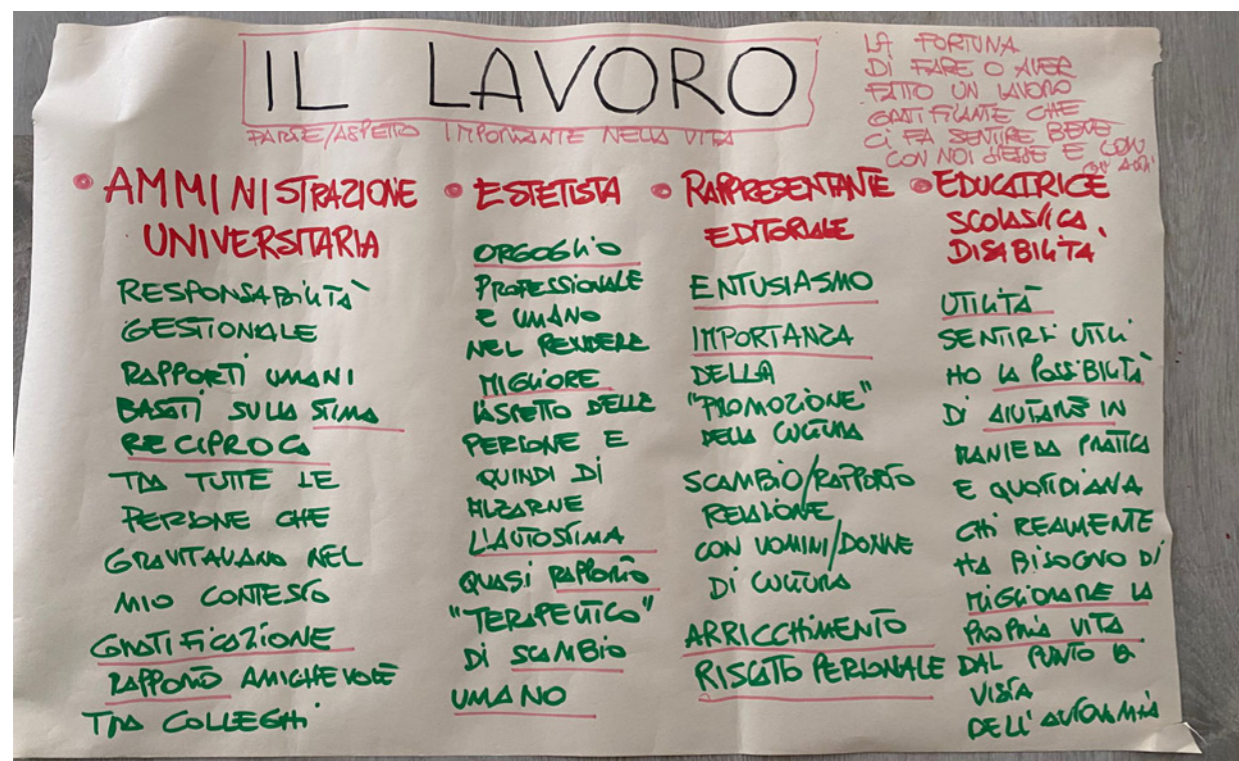 IL LAVORO
PARTE/ASPETTO IMPORTANTE NELLA VITA
LA FORTUNA
DI FARE O AVER
FATTO UN LAVORO
GRATIFICANTE CHE
CI FA SENTIRE BENE
CON NOI STESSE E CON
GLI ALTRI
• AMMINISTRAZIONE
UNIVERSITARIA
RESPONSABILITÀ
GESTIONALE
RAPPORTI UMANI
BASATI SULLA STIMA
RECIPROCA
TRA TUTTE LE
PERSONE CHE
GRAVITAVANO NEL
MIO CONTESTO
GRATIFICAZIONE
RAPPORTO AMICHEVOLE
TRA COLLEGHI
• ESTETISTA
ORGOGLIO
PROFESSIONALE
E UMANO
NEL RENDERE
MIGLIORE
L'ASPETTO DELLE
PERSONE E
QUINDI DI
ALZARNE
L'AUTOSTIMA
QUASI RAPPORTO
"TERAPEUTICO"
DI SCAMBIO
UMANO
• RAPPRESENTANTE
EDITORIALE
ENTUSIASMO
IMPORTANZA
DELLA
"PROMOZIONE"
DELLA CULTURA
SCAMBIO/RAPPORTO
RELAZIONE
CON UOMINI/DONNE
DI CULTURA
ARRICCHIMENTO
RISCATTO PERSONALE
• EDUCATRICE
SCOLASTICA
DISABILITÀ
UTILITÀ
SENTIRSI UTILI
HO LA POSSIBILITÀ
DI AIUTARE IN
MANIERA PRATICA
E QUOTIDIANA
CHI REALMENTE
HA BISOGNO DI
MIGLIORARE LA
PROPRIA VITA
DAL PUNTO DI
VISTA
DELL'AUTONOMIA